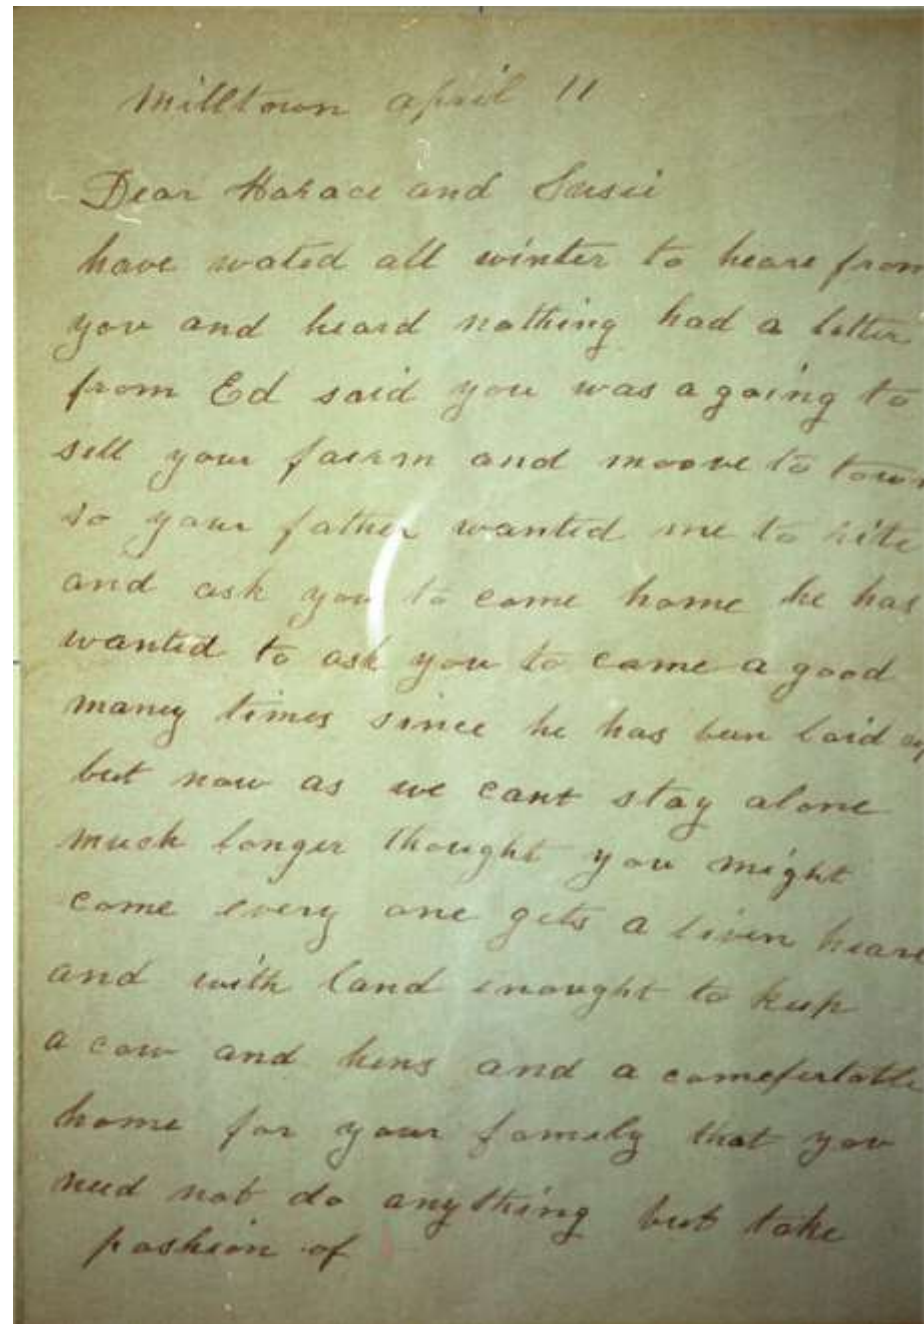 Milltown april 11
Dear Horace and Susei
have wated all winter to heare from
you and heard nothing had a letter
from Ed said you was a going to
sell your faerm and moove to town
so your father wanted me to rite
and ask you to come home he has
wanted to ask you to come a good
maney times since he has ben laid up
but now as we cant stay alone
much longer thought you might
come every one gets a liven heare
and with land enought to keep
a cow and hens and a comefertable
home for your famely that you
need not do anything but take
poshion of